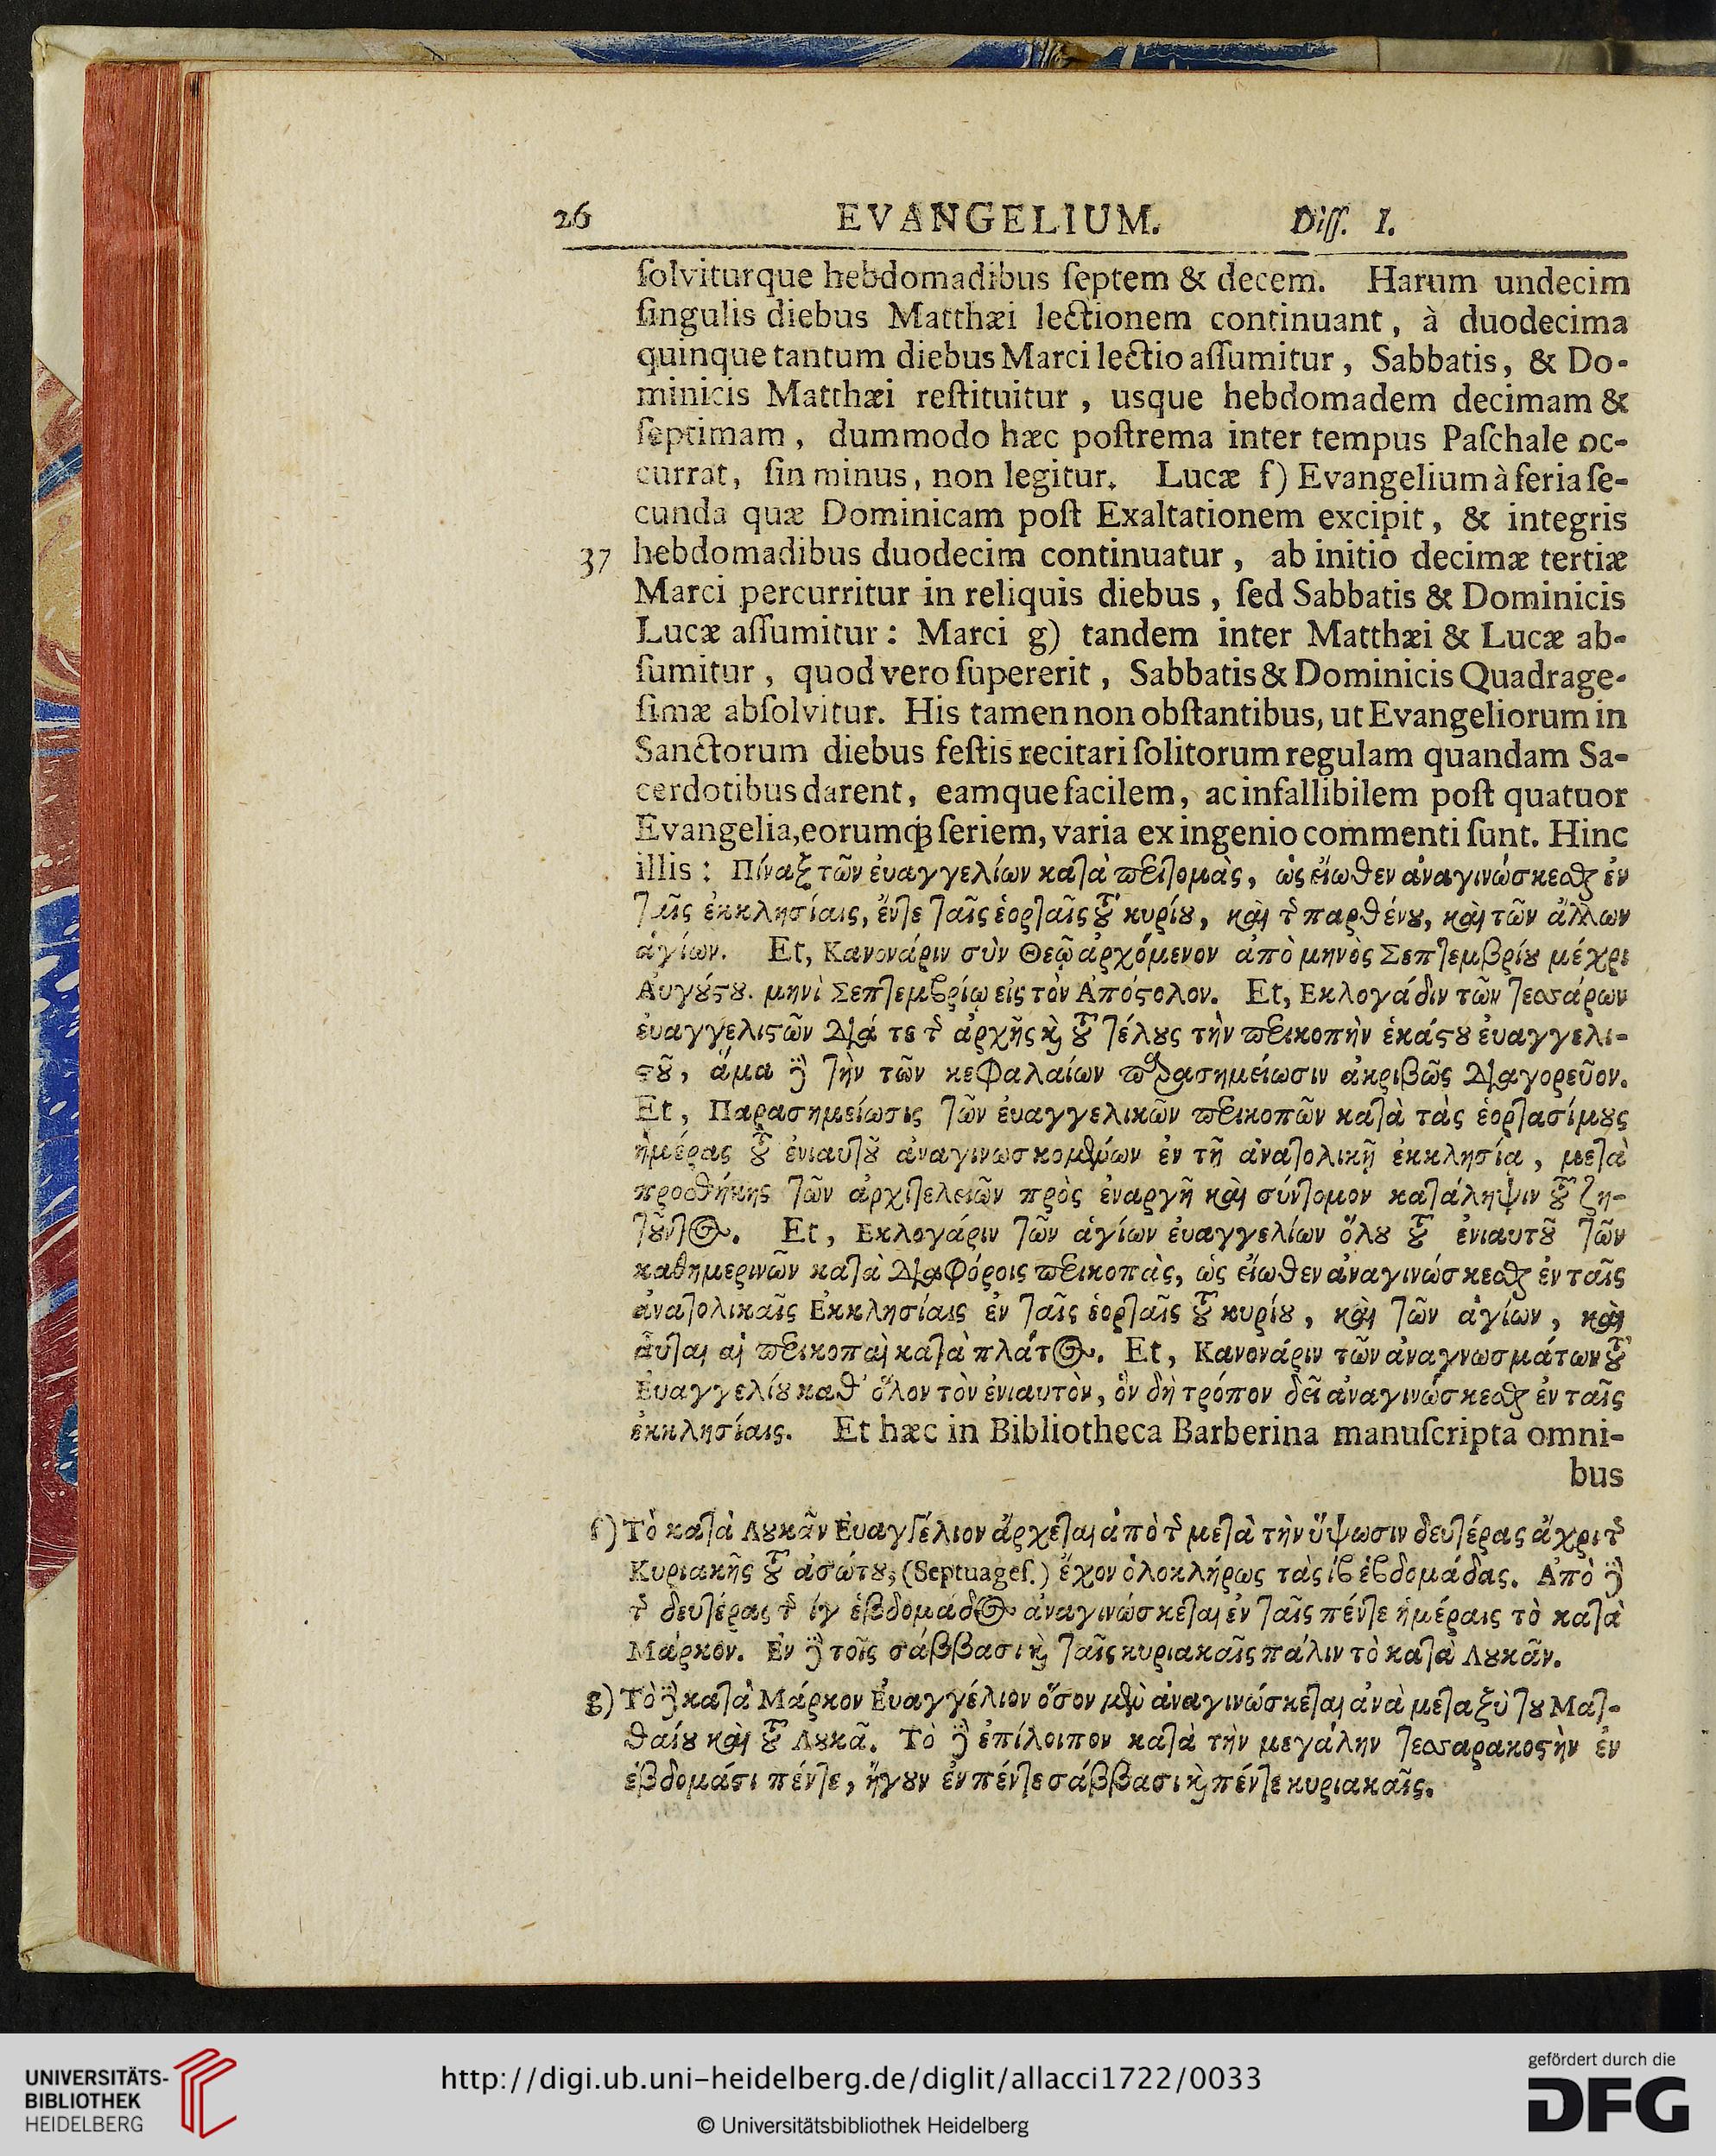 26 EVANGELIUM. Diss. I.
ſolviturque hebdomadibus ſeptem & decem. Harum undecim
ſingulis diebus Matthæi lectionem continuant, à duodecima
quinque tantum diebus Marci lectio aſſumitur, Sabbatis, & Do-
minicis Matthæi reſtituitur, usque hebdomadem decimam &
ſeptimam, dummodo hæc poſtrema inter tempus Paſchale oc-
currat, ſin minus, non legitur. Lucæ f) Evangelium à feria ſe-
cunda quæ Dominicam poſt Exaltationem excipit, & integris
37 hebdomadibus duodecim continuatur, ab initio decimæ tertiæ
Marci percurritur in reliquis diebus, ſed Sabbatis & Dominicis
Lucæ aſſumitur: Marci g) tandem inter Matthæi & Lucæ ab-
ſumitur, quod vero ſupererit, Sabbatis & Dominicis Quadrage-
ſimæ abſolvitur. His tamen non obſtantibus, ut Evangeliorum in
Sanctorum diebus feſtis recitari ſolitorum regulam quandam Sa-
cerdotibus darent, eamque facilem, ac infallibilem poſt quatuor
Evangelia, eorumq́ꝫ ſeriem, varia ex ingenio commenti ſunt. Hinc
illis: Πίναξ τῶν ἐυαγγελίων καὶὰ περιτομὰς, ὡς εἴωθεν ἀναγινώσκεσθαι ἐν
ταῖς ἐκκλησίαις, ἔντε ταῖς ἑορταῖς τοῦ κυρίου, καὶ τῆς παρθένου, καὶ τῶν ἄλλων
ἁγίων. Et, Κανονάριν σὺν Θεῷ ἀρχόμενον ἀπὸ μηνὸς Σεπτεμβρίου μέχρι
Ἀυγούστου. μηνὶ Σεπτεμβρίῳ εἰς τὸν Ἀπόστολον. Et, Εκλογάδιν τῶν τεσσάρων
ἐυαγγελιστῶν διά τε τῆς ἀρχῆς καὶ τοῦ τέλους τὴν περικοπὴν ἑκάστου ἐυαγγελι-
στοῦ, ἅμα δὲ τὴν τῶν κεφαλαίων παρασημείωσιν ἀκριβῶς διαγορεῦον.
Et, Παρασημείωσις τῶν ἐυαγγελικῶν περικοπῶν κατὰ τὰς ἑορτασίμους
ἡμέρας τοῦ ἐνιαυτοῦ ἀναγινωσκομένων ἐν τῇ ἀνατολικῇ ἐκκλησία, μετὰ
προσθήκης τῶν ἀρχιτελειῶν πρὸς ἐναργῆ καὶ σύντομον κατάληψιν τοῦ ζη-
τοῦντος. Et, Εκλογάριν τῶν ἁγίων ἐυαγγελίων ὅλου τοῦ ἐνιαυτοῦ τῶν
καθημερινῶν κατὰ διαφόροις περικοπὰς, ὡς εἴωθεν ἀναγινώσκεσθαι ἐν ταῖς
ἀνατολικαῖς Εκκλησίαις ἐν ταῖς ἑορταῖς τοῦ κυρίου, καὶ τῶν ἁγίων, καὶ
αὗται αἱ περικοπαὶ κατὰ πλάτος. Et, Κανονάριν τῶν ἀναγνωσμάτων τοῦ
Ευαγγελίου καθ' ὅλον τὸν ἐνιαυτὸν, ὃν δὴ τρόπον δεῖ ἀναγινώσκεσθαι ἐν ταῖς
ἐκκλησίαις. Et hæc in Bibliotheca Barberina manuſcripta omni-
bus
f) Τὸ κατὰ Λουκᾶν Ευαγγέλιον ἄρχεται ἀπὸ τῆς μετὰ τὴν ὕψωσιν δευτέρας ἄχρι τῆς
Κυριακῆς τοῦ ἀσώτου, (Septuageſ.) ἔχον ὁλοκλήρως τὰς ιβ ἑβδομάδας. Ἀπὸ δὲ
τῆς δευτέρας τῆς ιγ ἑβδομάδος ἀναγινώσκεται ἐν ταῖς πέντε ἡμέραις τὸ κατὰ
Μάρκον. Εν δὲ τοῖς σάββασι καὶ ταῖς κυριακαῖς πάλιν τὸ κατὰ Λουκᾶν.
g) Τὸ δὲ κατὰ Μάρκον Ευαγγέλιον ὅσον μὲν ἀναγινώσκεται ἀνὰ μεταξὺ του Ματ-
θαίου καὶ τοῦ Λουκᾶ. Τὸ δὲ ἐπίλοιπον κατὰ τὴν μεγάλην τεσσαρακοστὴν ἐν
ἑβδομάσι πέντε, ἤγουν ἐν πέντε σάββασι καὶ πέντε κυριακαῖς.
UNIVERSITÄTS-
BIBLIOTHEK
HEIDELBERG
http://digi.ub.uni-heidelberg.de/diglit/allacci1722/0033
© Universitätsbibliothek Heidelberg
gefördert durch die
DFG